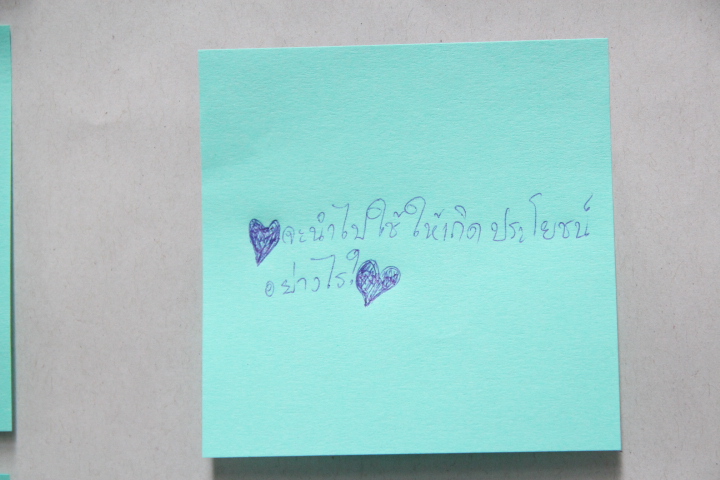 จะนำไปใช้ ให้เกิด ประโยชน์
อย่างไร?